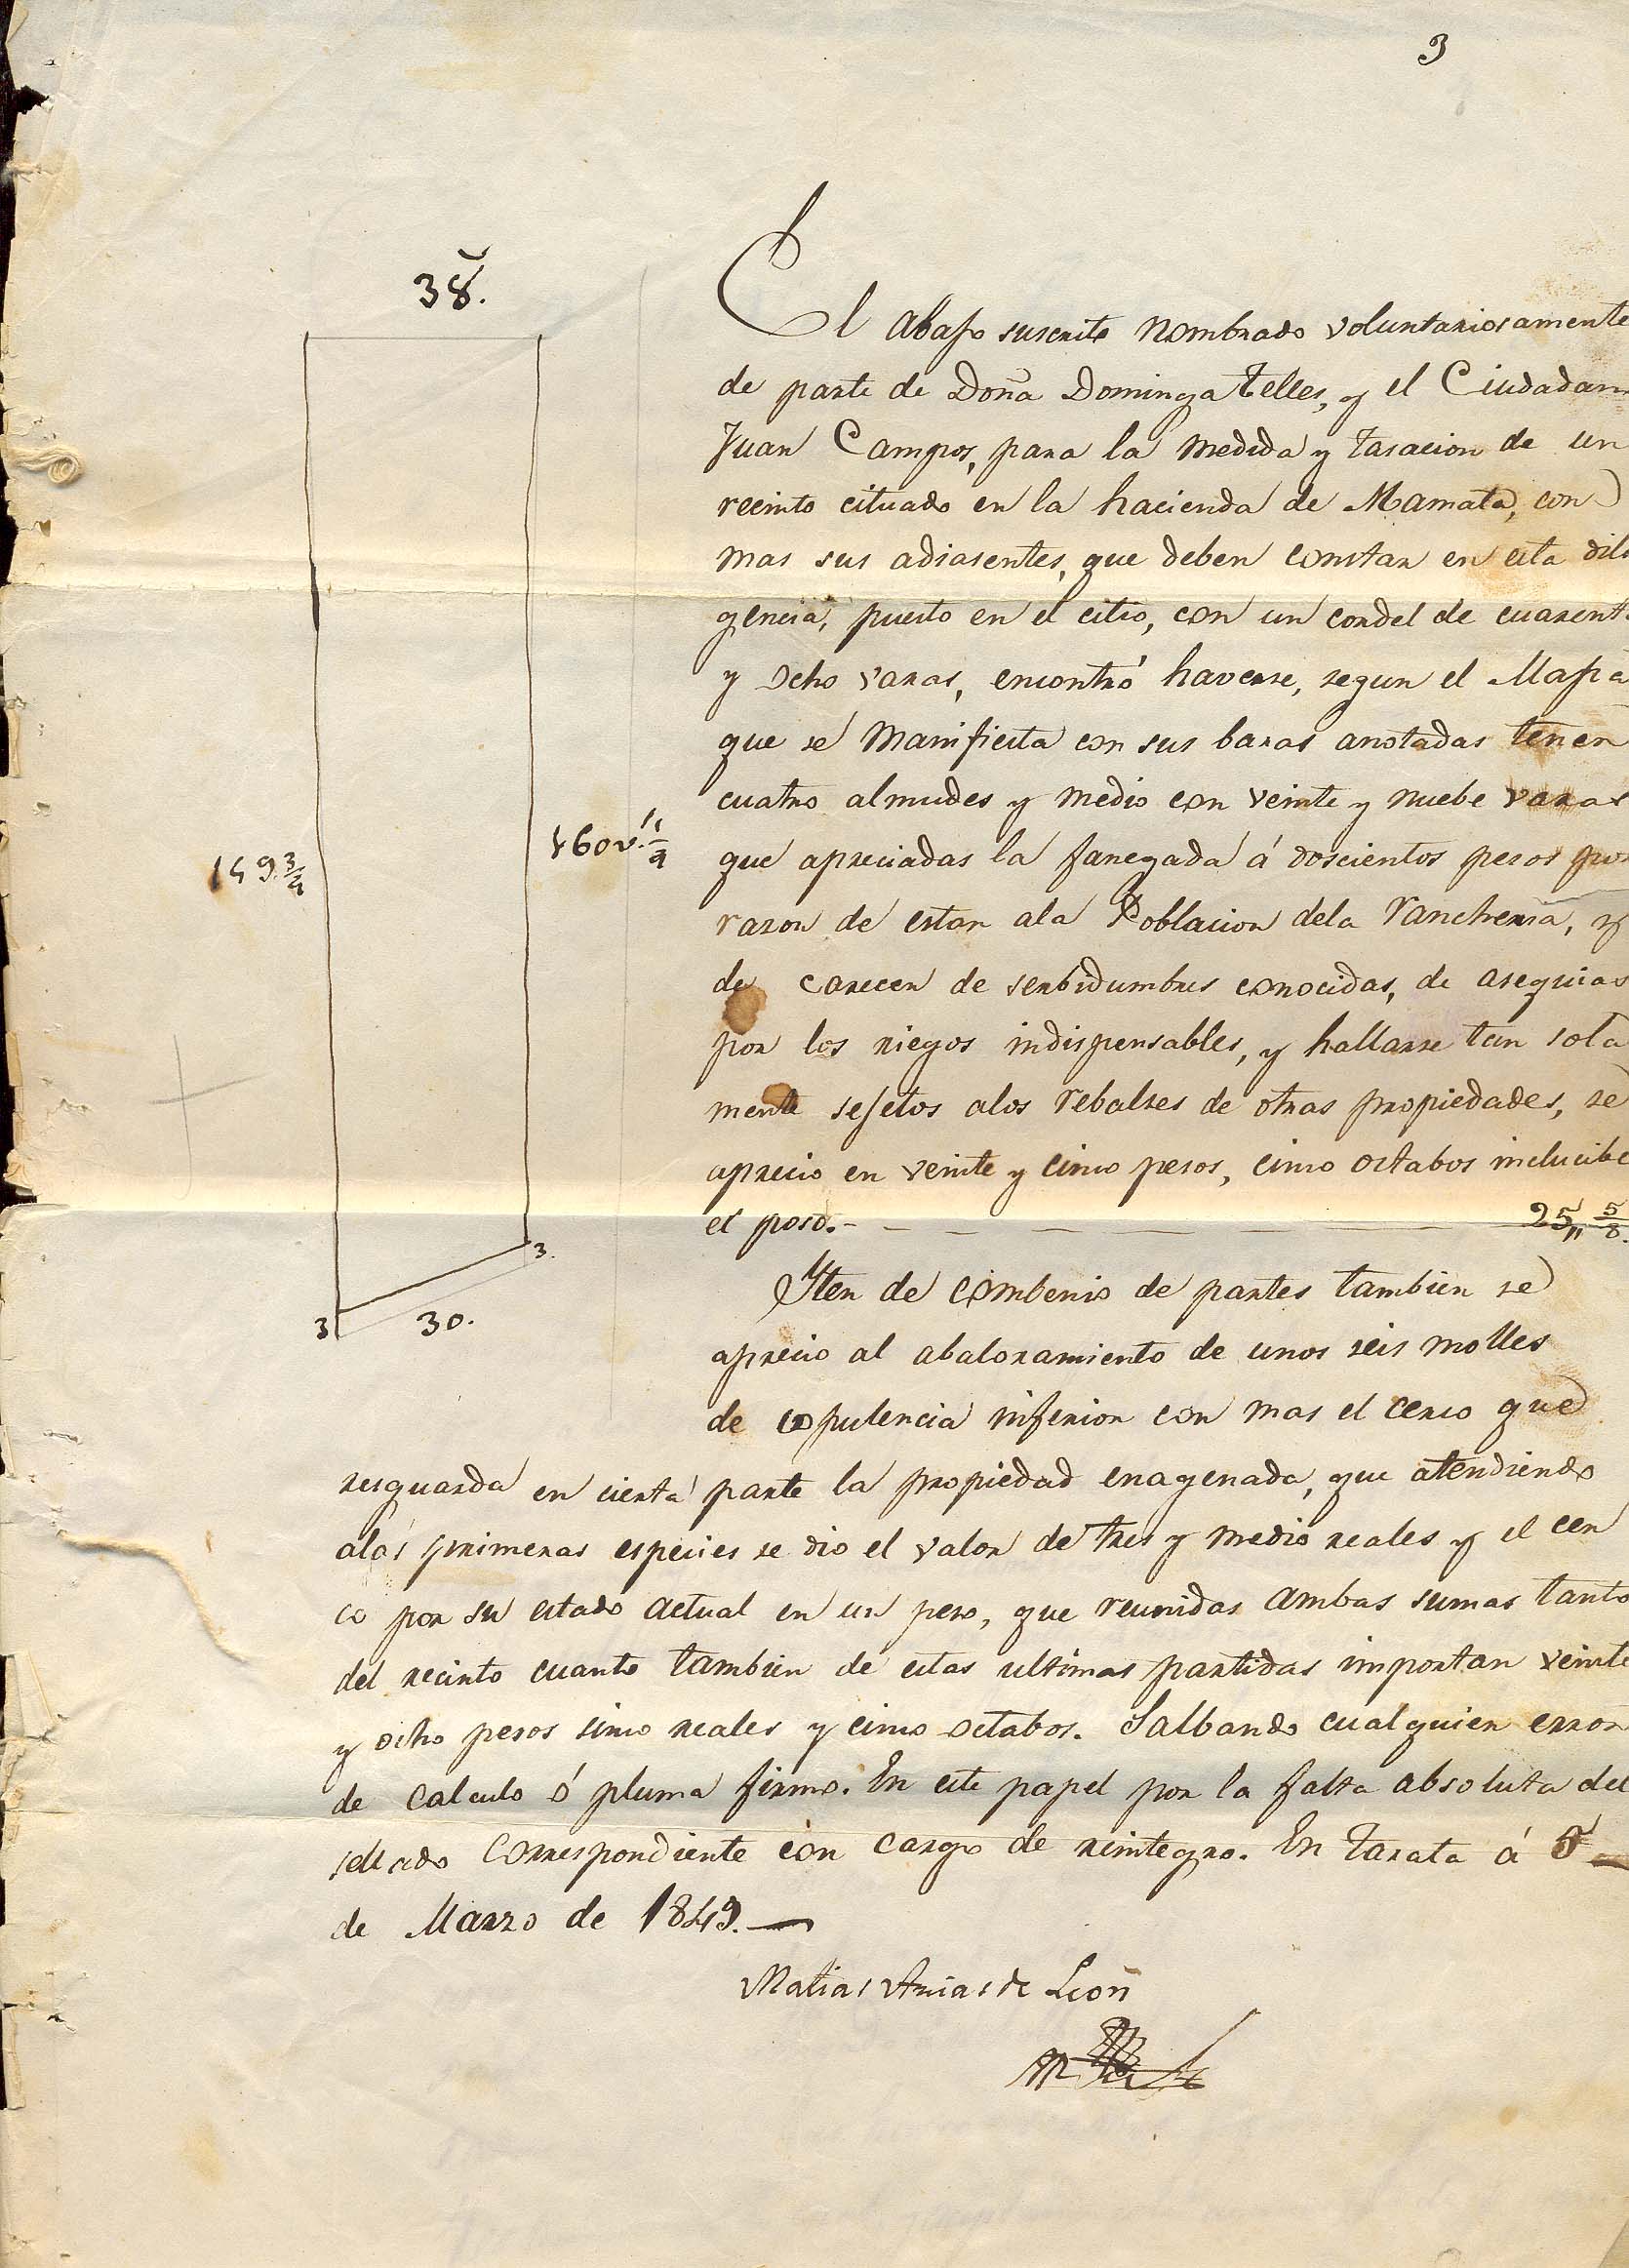 3
38.
El abajo suscrito nombrado voluntariosamente
de parte de Doña Dominga Telles, y el Ciudadan
Juan Campos, para la medida y tasacion de un
recinto cituado en la hacienda de Mamata, con
mas sus adiasentes, que deben constar en esta dili
gencia, puesto en el citio, con un cordel de cuarent
y ocho varas, encontró haverse, segun el Mapa
que se manifiesta con sus baras anotadas tener
cuatro almudes y medio con veinte y nuebe varas
que apreciadas la fanegada á doscientos pesos por
razon de estar ala Poblacion dela rancheria, y
de carecer de serbidumbres conocidas, de asequias
por los riegos indispensables, y hallarse tan sola
mente sejetos alos rebalses de otras propiedades, se
aprecio en veinte y cinco pesos, cinco octabos inclucibe
el poso. 25,, 5/8.
149 3/4
160 v.
3.
3
30.
Yten de combenio de partes tambien se
aprecio al abaloramiento de unos seis molles
de copulencia inferior con mas el cerco que
resguarda en cierta parte la propiedad enagenada, que atendiendo
alas primeras especies se dio el valor de tres y medio reales y el cer
co por su estado actual en un peso, que reunidas ambas sumas tanto
del recinto cuanto tambien de estas ultimas partidas importan veinte
y ocho pesos sinco reales y cinco octabos. Salbando cualquier error
de calculo ó pluma firmo. En este papel por la falta absoluta del
sellado correspondiente con cargo de reintegro. En Tarata á 5
de Marzo de 1849.
Matias Arias de León